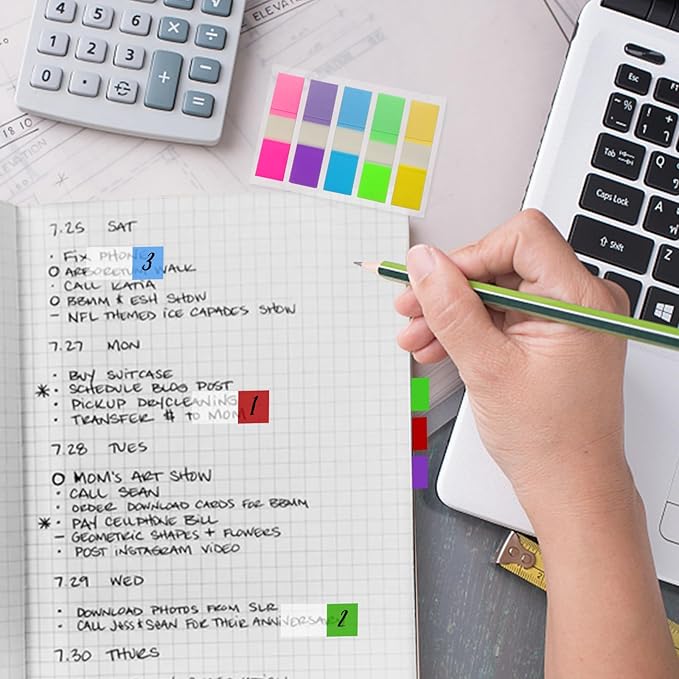 4 5 6 × ÷
1 2 3 - +
0 . =
ELEVATION
18 10
ELEVATION
7.25 SAT
· FIX PHONE
O ARBORETUM WALK
3
· CALL KATIA
O BBMM & ESH SHOW
– NFL THEMED ICE CAPADES SHOW
7.27 MON
· BUY SUITCASE
* · SCHEDULE BLOG POST
· PICKUP DRYCLEANING
· TRANSFER $ TO MOM
1
7.28 TUES
O MOM'S ART SHOW
· CALL SEAN
· ORDER DOWNLOAD CARDS FOR BBMM
* · PAY CELLPHONE BILL
– GEOMETRIC SHAPES + FLOWERS
· POST INSTAGRAM VIDEO
7.29 WED
· DOWNLOAD PHOTOS FROM SLR
· CALL JESS & SEAN FOR THEIR ANNIVERSARY
2
7.30 THURS
Esc F1
% ! +
Tab Q
Caps Lock A
Shift Z